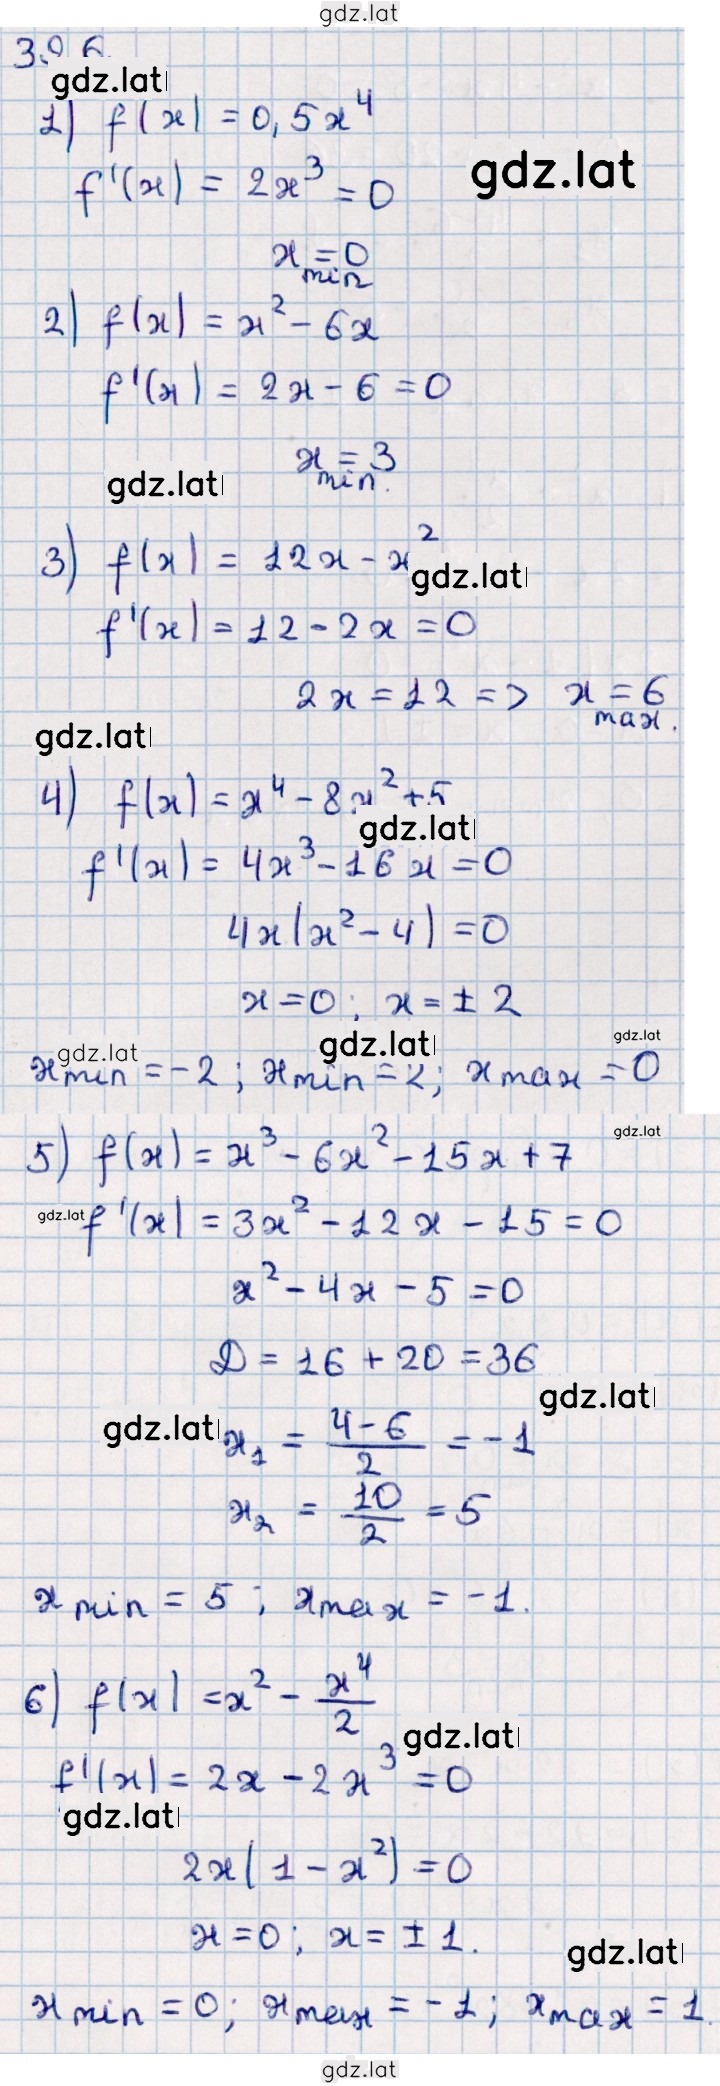 gdz.lat
gdz.lat
1) f(x) = 0,5x⁴
gdz.lat
f'(x) = 2x³ = 0
x min = 0
2) f(x) = x² - 6x
f'(x) = 2x - 6 = 0
x min = 3
gdz.lat
3) f(x) = 12x - x²
gdz.lat
f'(x) = 12 - 2x = 0
2x = 12 => x max = 6.
gdz.lat
4) f(x) = x⁴ - 8x² + 5
gdz.lat
f'(x) = 4x³ - 16x = 0
4x(x² - 4) = 0
x = 0; x = ± 2
gdz.lat gdz.lat gdz.lat
x min = -2; x min = 2; x max = 0
gdz.lat
5) f(x) = x³ - 6x² - 15x + 7
gdz.lat
f'(x) = 3x² - 12x - 15 = 0
x² - 4x - 5 = 0
D = 16 + 20 = 36
gdz.lat
gdz.lat
x₁ = (4-6)/2 = -1
x₂ = 10/2 = 5
x min = 5; x max = -1.
6) f(x) = x² - x⁴/2
gdz.lat
f'(x) = 2x - 2x³ = 0
gdz.lat
2x(1 - x²) = 0
x = 0; x = ± 1.
gdz.lat
x min = 0; x max = -1; x max = 1.
gdz.lat